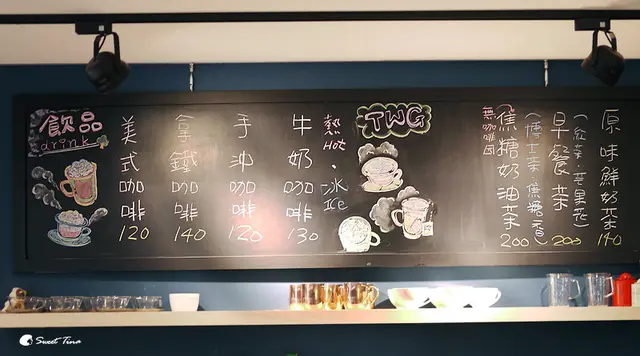 飲品
drink
美式咖啡
120
拿鐵咖啡
140
手沖咖啡
120
牛奶咖啡
130
熱Hot、冰ICE
TWG
無咖啡因
焦糖奶油茶
200
(博士茶、焦糖香)
早餐茶
200
(紅茶、芒果花)
原味鮮奶茶
140
Sweet Tina